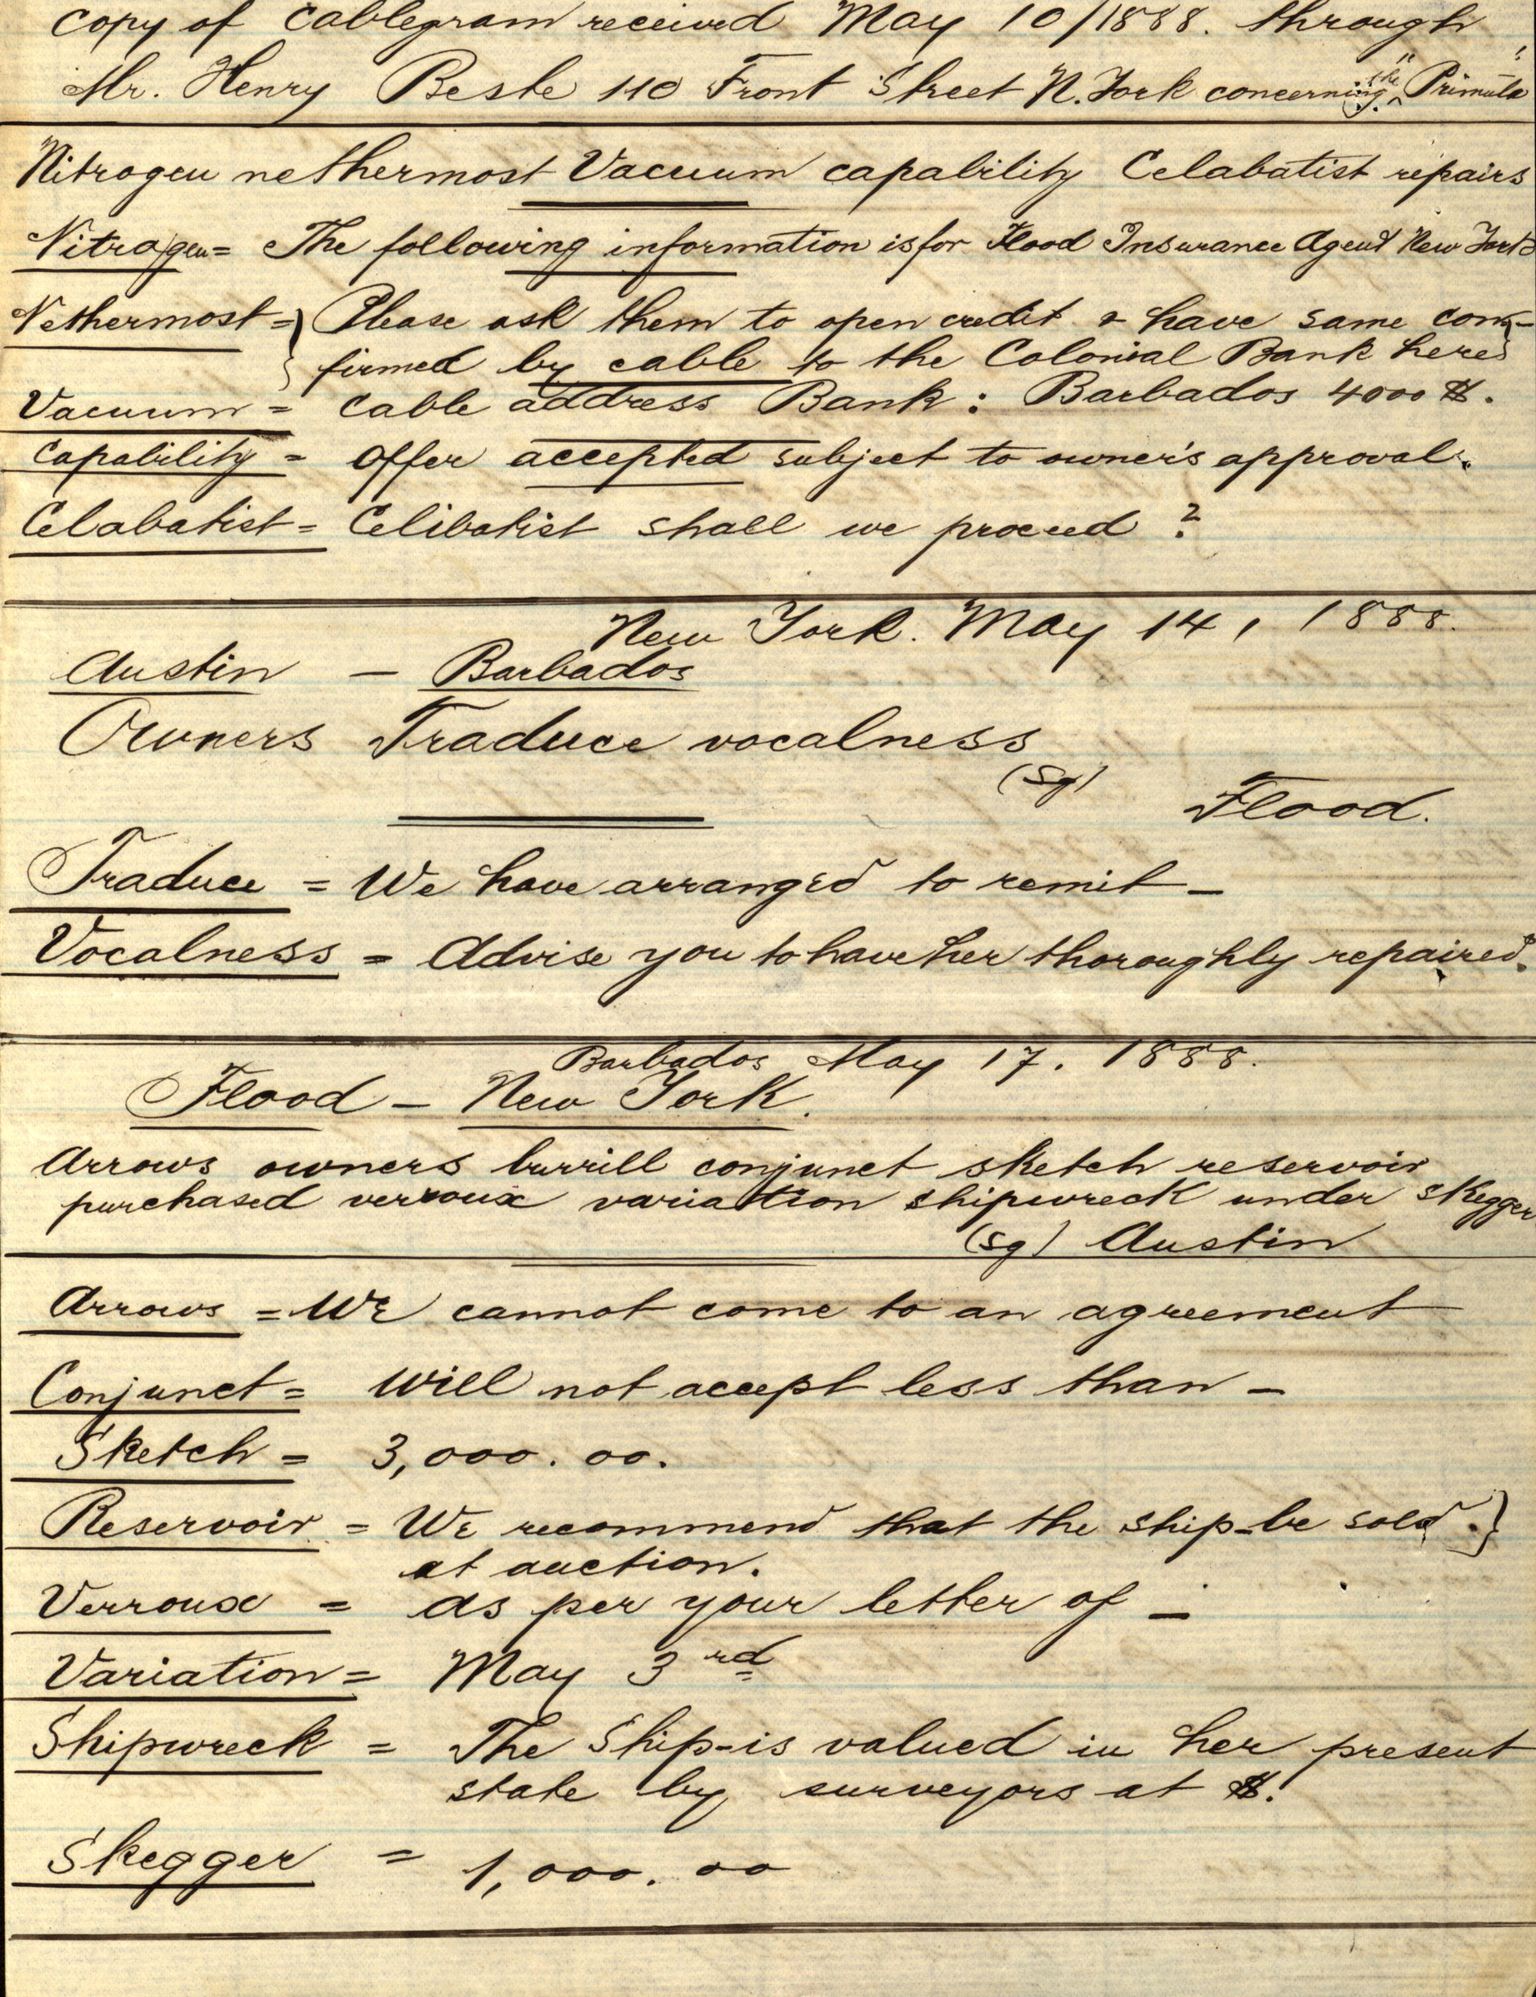 Copy of Cablegram received May 10/1888. through
Mr. Henry Beste 110 Front Street N. York concerning the "Primula"
Nitrogen nethermost Vacuum capability Celabatist repairs
Nitrogen = The following information is for Flood Insurance Agent New York
Nethermost = } Please ask them to open credit & have same con-
firmed by cable to the Colonial Bank here
Vacuum = Cable address Bank: Barbados 4000 $.
Capability = Offer accepted subject to owner's approval.
Celabatist = Celibatist shall we proceed?
New York. May 14, 1888.
Austin – Barbados
Owners Traduce vocalness
(Sg)
Flood.
Traduce = We have arranged to remit –
Vocalness = Advise you to have her thoroughly repaired.
Barbados May 17. 1888.
Flood – New York.
Arrows owners burrill conjunct sketch reservoir
purchased verroux variation shipwreck under skegger
(Sg) Austin
Arrows = We cannot come to an agreement
Conjunct = Will not accept less than –
Sketch = 3,000.00.
Reservoir = We recommend that the ship-be sold. }
at auction.
Verroux = As per your letter of –
Variation = May 3rd
Shipwreck = The Ship-is valued in her present
state by surveyors at $.
Skegger = 1,000.00